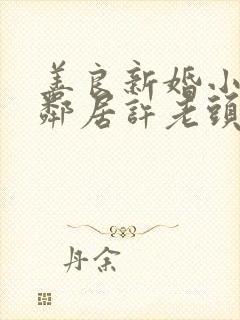 善良新婚小
鄰居許老頭
丹余